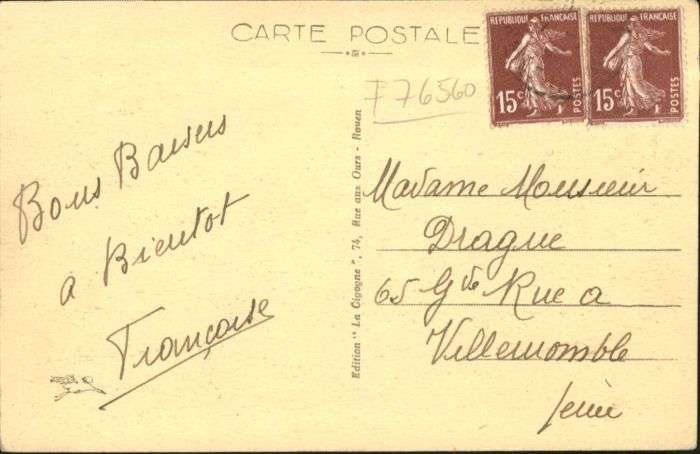 CARTE POSTALE
REPUBLIQUE FRANÇAISE
15c
POSTES
REPUBLIQUE FRANÇAISE
15c
POSTES
F 76560
Bons Baisers
a Bientot
Françoise
Edition "La Cigogne", 74, Rue aux Ours - Rouen
Madame Monsieur
Drague
65 Gde Rue a
Villemomble
Seine